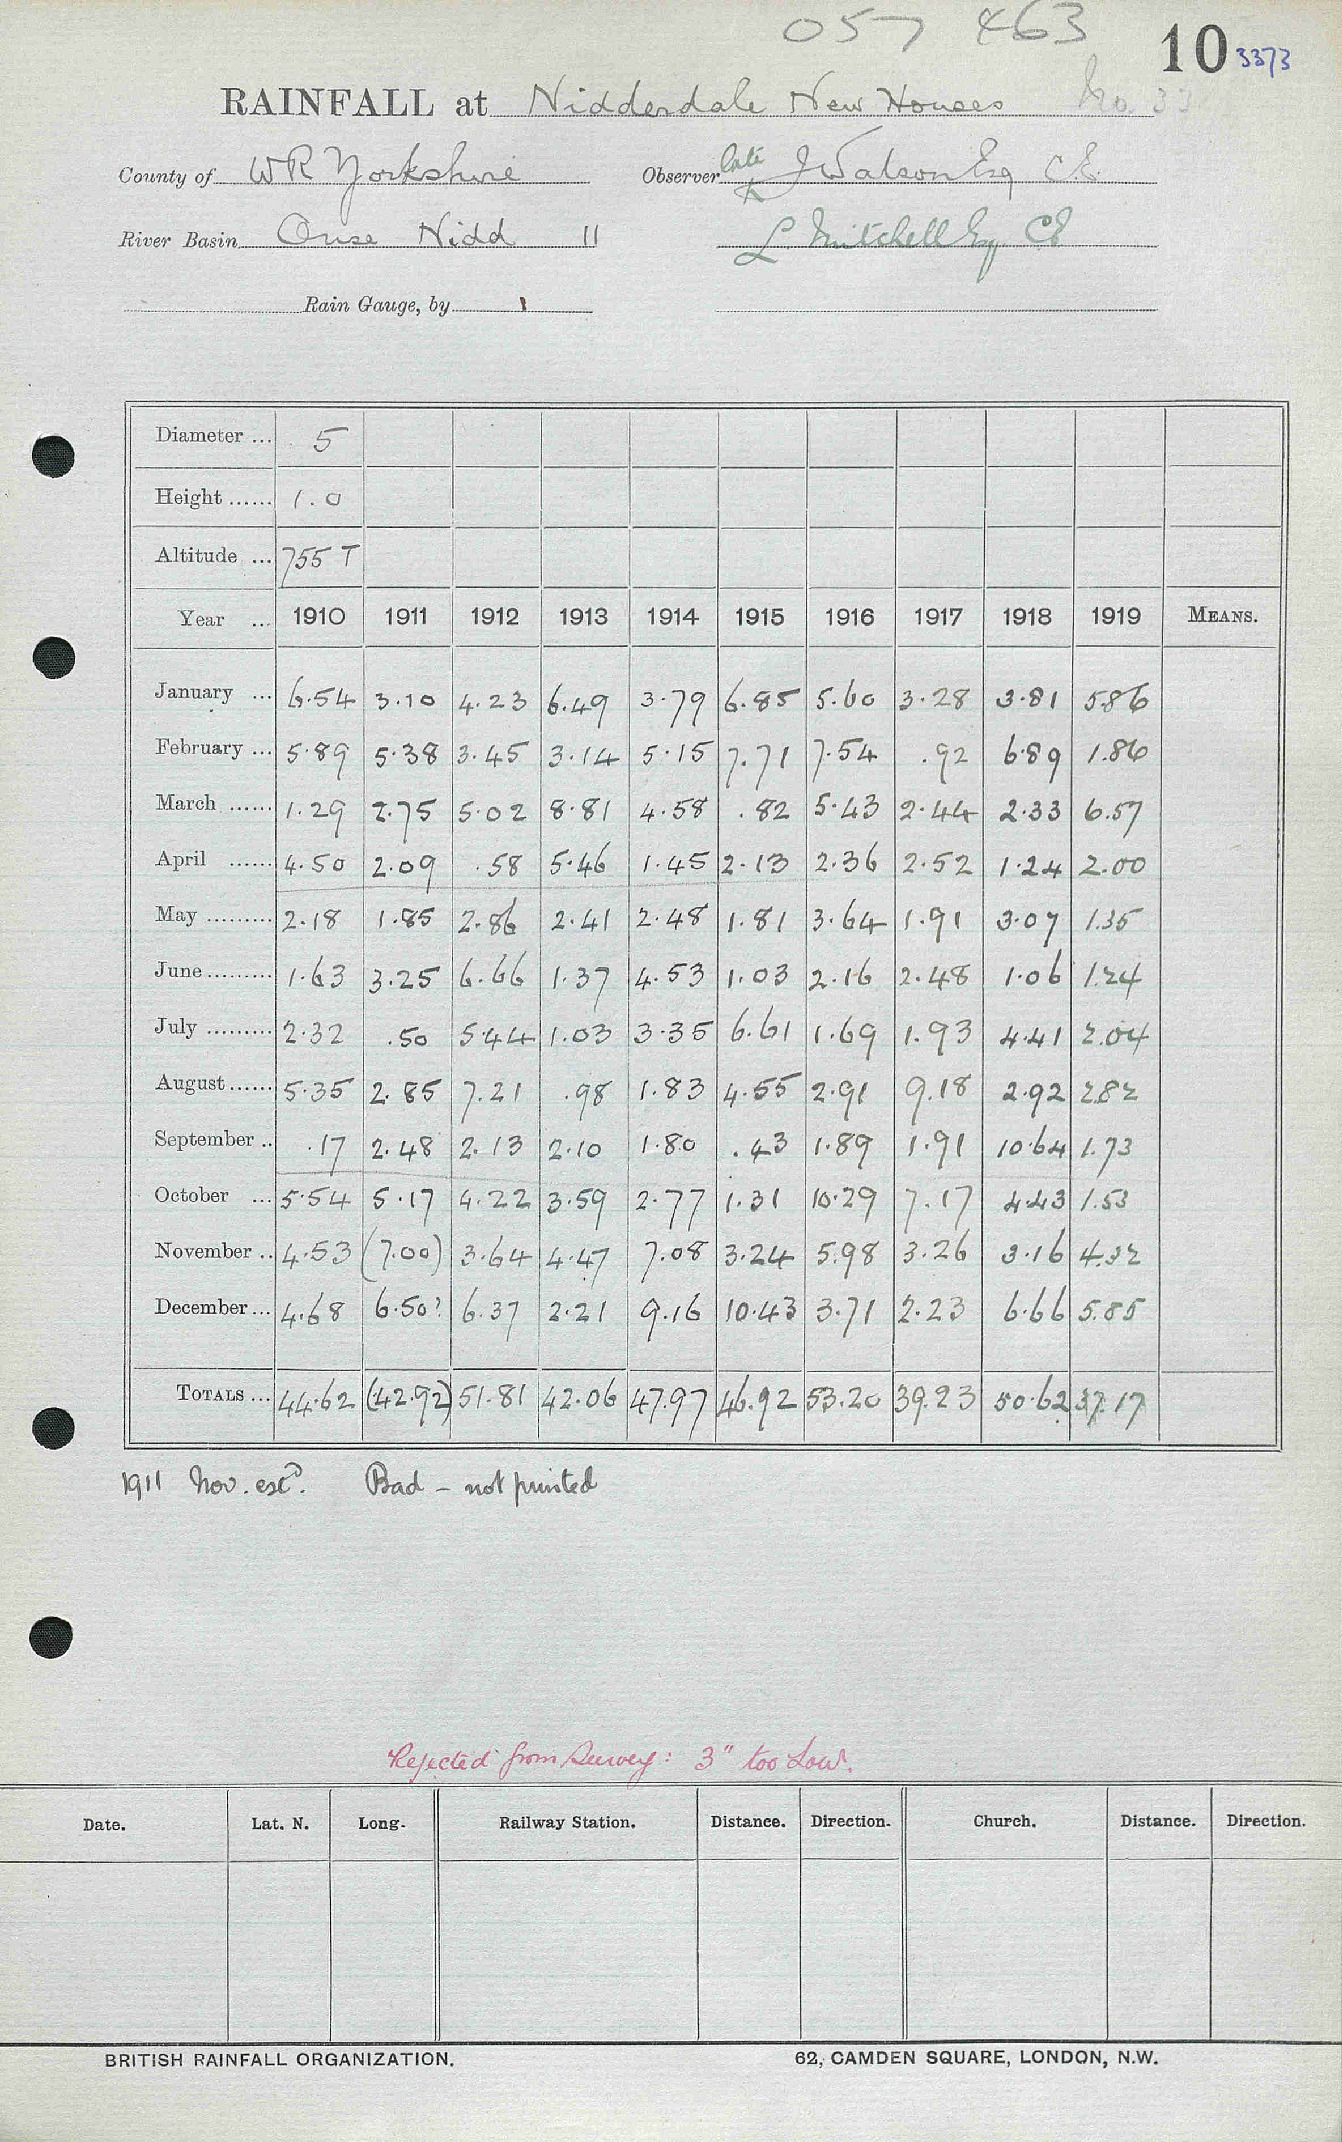 057 463
10 3373
RAINFALL at Nidderdale New Houses No. 33
County of WR Yorkshire Observer late J Watson Esq CE
River Basin Ouse Nidd 11 L. Mitchell Esq CE
Rain Gauge, by
Diameter ... 5
Height ...... 1.0
Altitude ... 755 T
Year ... 1910 1911 1912 1913 1914 1915 1916 1917 1918 1919 MEANS.
January ... 6.54 3.10 4.23 6.49 3.79 6.85 5.60 3.28 3.81 5.86
February ... 5.89 5.38 3.45 3.14 5.15 7.71 7.54 .92 6.89 1.86
March ...... 1.29 2.75 5.02 8.81 4.58 .82 5.43 2.44 2.33 6.57
April ...... 4.50 2.09 .58 5.46 1.45 2.13 2.36 2.52 1.24 2.00
May ......... 2.18 1.85 2.86 2.41 2.48 1.81 3.64 1.91 3.07 1.35
June ......... 1.63 3.25 6.66 1.37 4.53 1.03 2.16 2.48 1.06 1.24
July ......... 2.32 .50 5.44 1.03 3.35 6.61 1.69 1.93 4.41 2.04
August ...... 5.35 2.85 7.21 .98 1.83 4.55 2.91 9.18 2.92 2.82
September .. .17 2.48 2.13 2.10 1.80 .43 1.89 1.91 10.64 1.73
October ... 5.54 5.17 4.22 3.59 2.77 1.31 10.29 7.17 4.43 1.53
November .. 4.53 (7.00) 3.64 4.47 7.08 3.24 5.98 3.26 3.16 4.32
December ... 4.68 6.50? 6.37 2.21 9.16 10.43 3.71 2.23 6.66 5.85
TOTALS ... 44.62 (42.92) 51.81 42.06 47.97 46.92 53.20 39.23 50.62 37.17
1911 Nov. estd. Bad - not printed
Rejected from Survey: 3" too Low.
Date. Lat. N. Long. Railway Station. Distance. Direction. Church. Distance. Direction.
BRITISH RAINFALL ORGANIZATION. 62, CAMDEN SQUARE, LONDON, N.W.